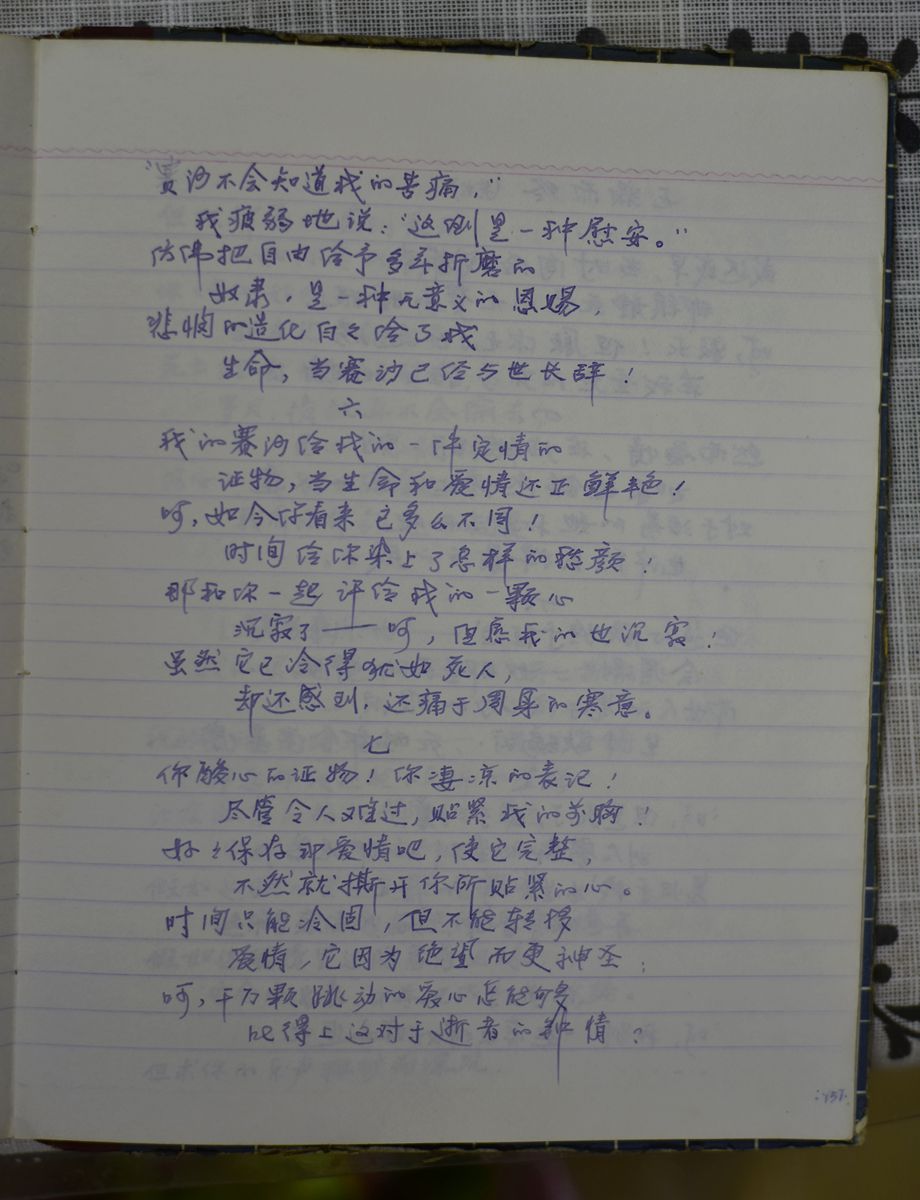 “赛沙不会知道我的苦痛，”
我疲弱地说：“这倒是一种慰安。”
仿佛把自由给予多年折磨的
奴隶，是一种无意义的恩赐，
悲悯的造化白々给了我
生命，当赛沙已经与世长辞！
六
我的赛沙给我的一件定情的
证物，当生命和爱情还正鲜艳！
呵，如今你看来已多么不同！
时间给你染上了怎样的愁颜！
那和你一起许给我的一颗心
沉寂了——呵，但愿我的也沉寂！
虽然它已冷得犹如死人，
却还感到，还痛于周身的寒意。
七
你酸心的证物！你凄凉的表记！
尽管令人难过，贴紧我的前胸！
好々保存那爱情吧，使它完整，
不然就撕开你所贴紧的心。
时间只能冷固，但不能转移
爱情，它因为绝望而更神圣；
呵，千万颗跳动的爱心怎能够
比得上这对于逝者的钟情？